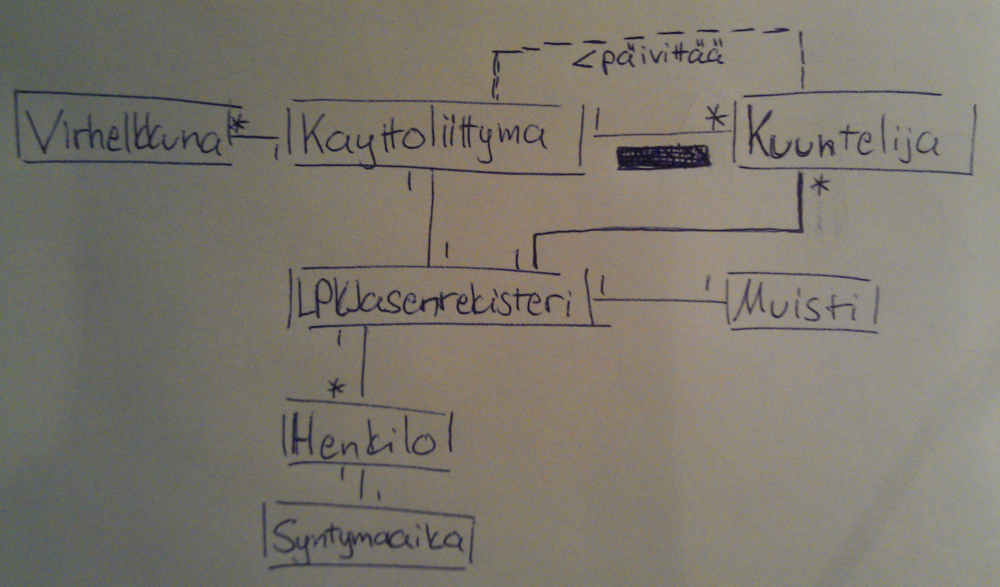 <päivittää
Virheikkuna * 1 Kayttoliittyma 1 * Kuuntelija
1 1 1 *
LPKJasenrekisteri 1 1 Muisti
1
*
Henkilo
1 1
Syntymaaika